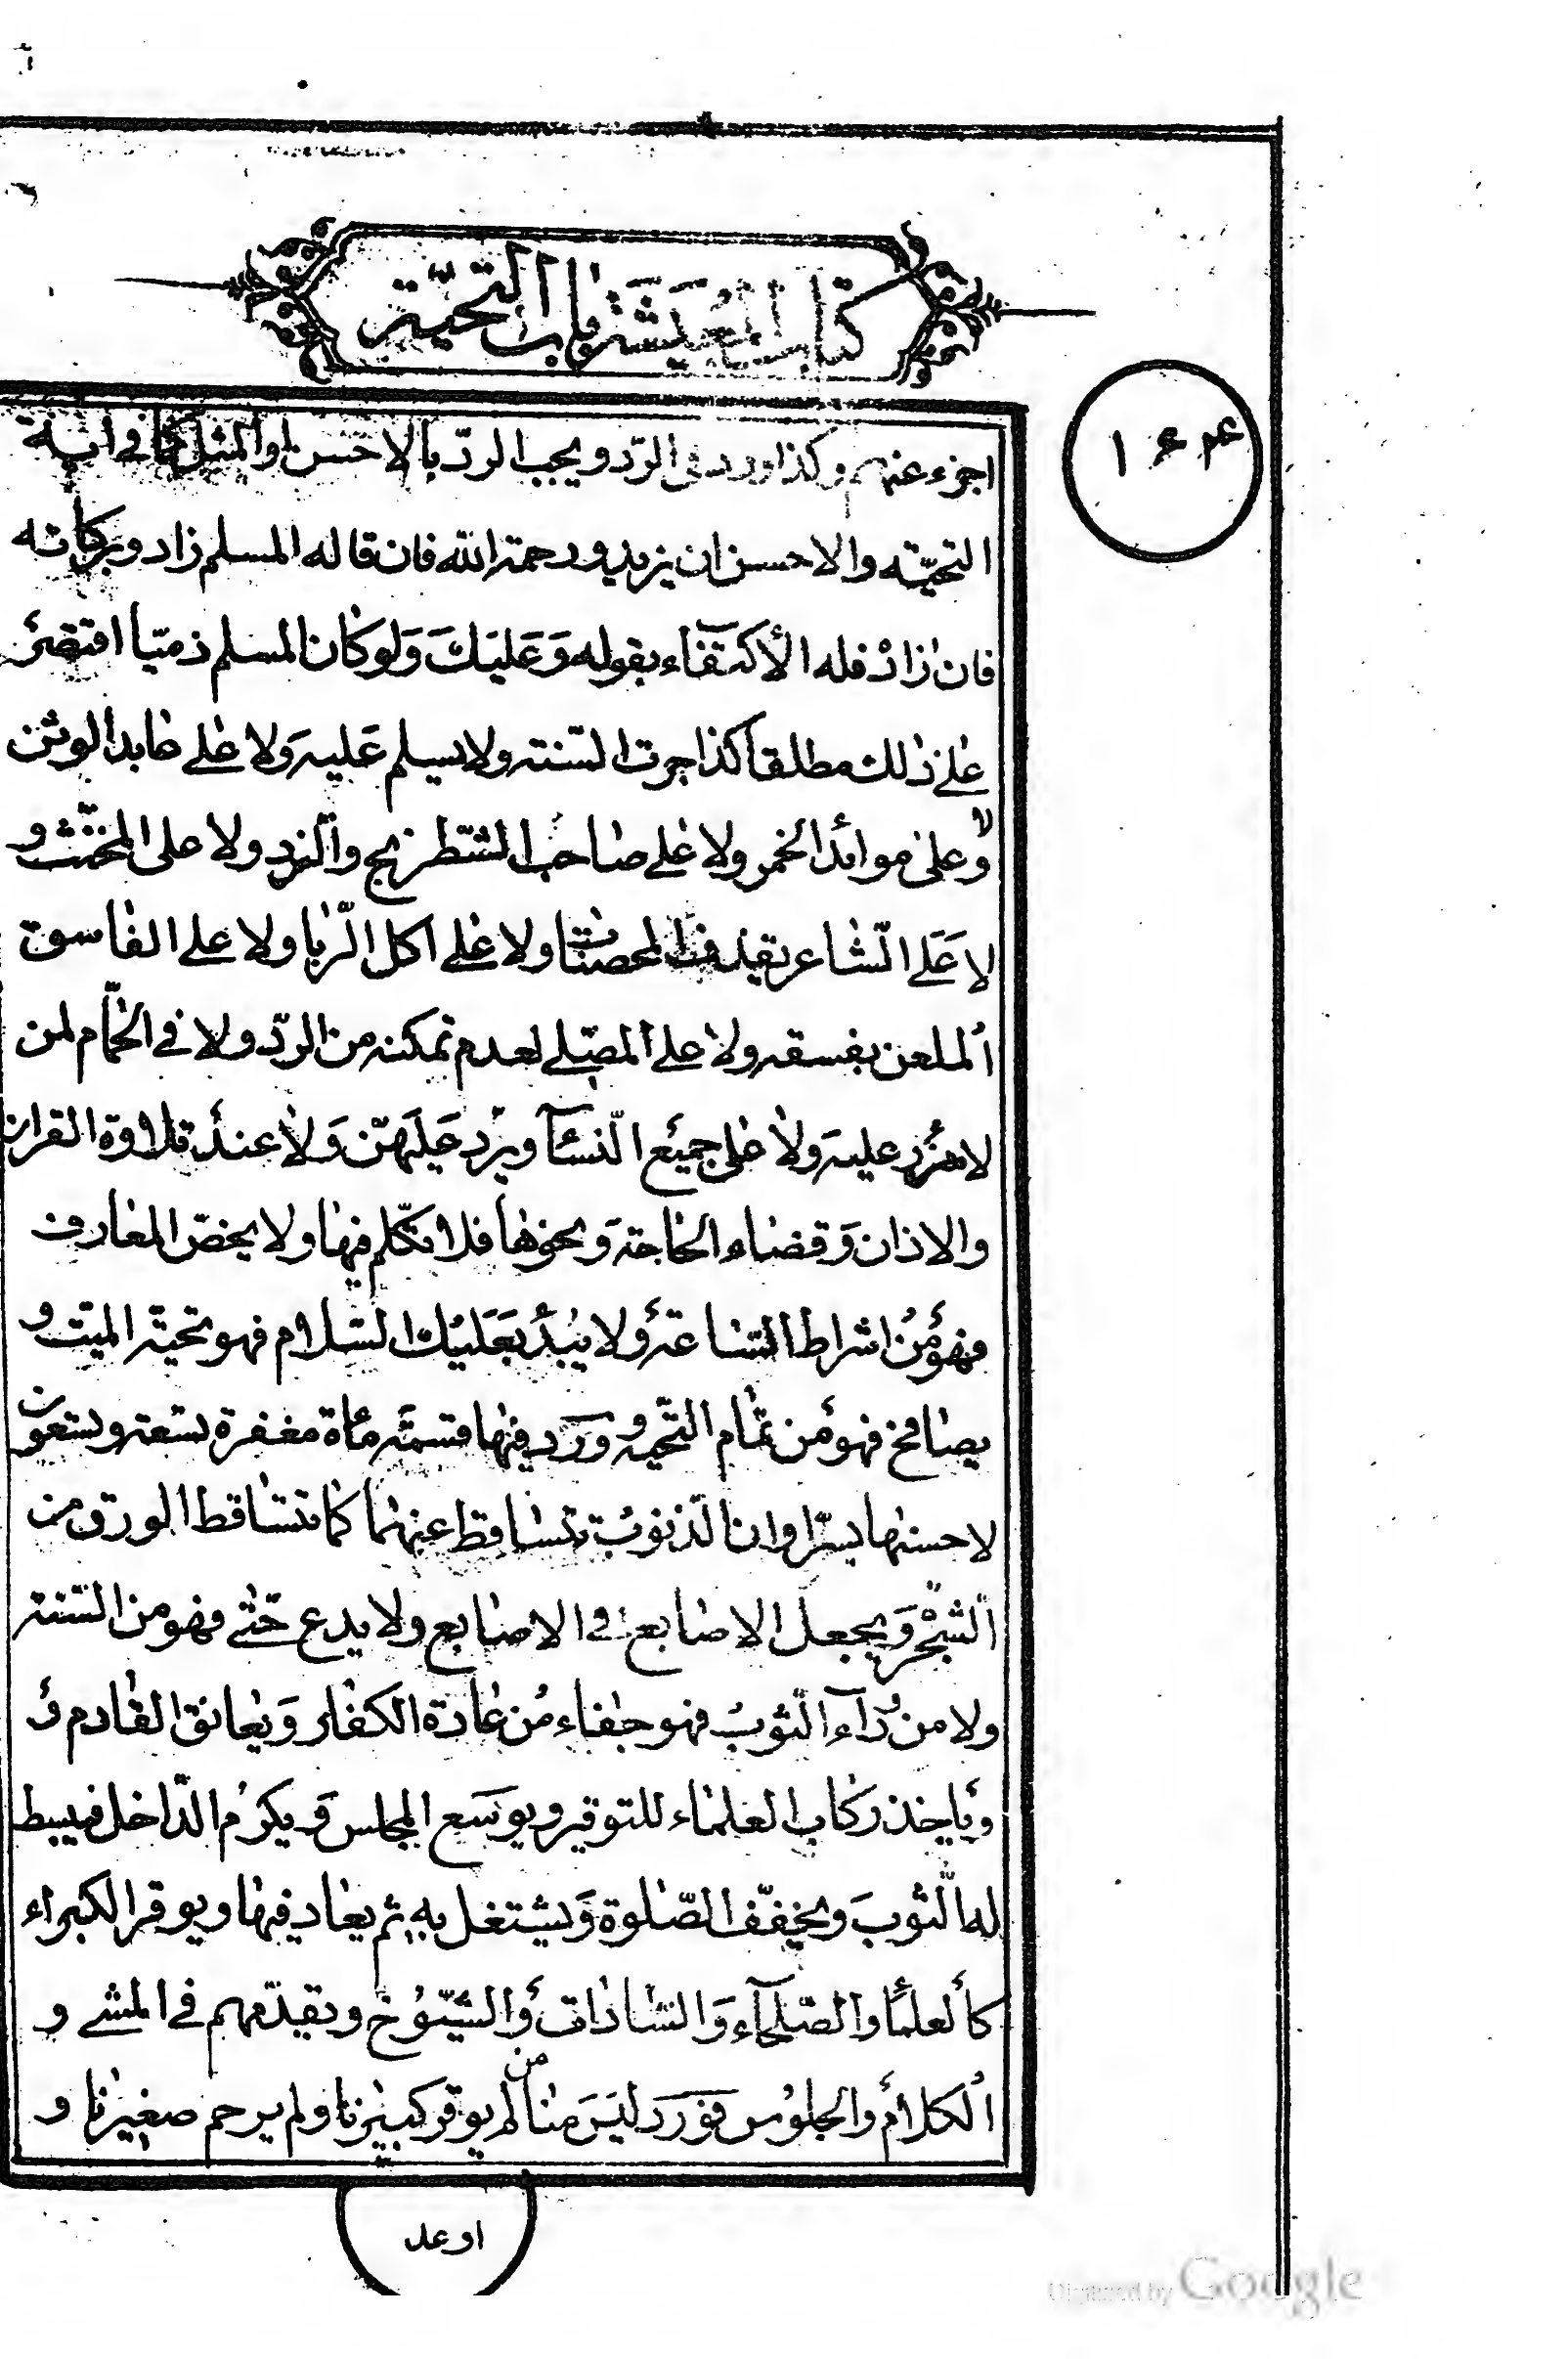 كتاب المعيشة باب التحية
اجزء عنهم وكذا ورد فى الرّد ويجب الردّ بالاحسن او المثل كما فى اية
التحيّته والاحسن ان يزيد ورحمة الله فان قاله المسلم زاد وبركاته
فان زاد فله الأكتفاء بقوله وَعَليَكَ وَلو كان المسلم ذميّا اقتصر
على ذلك مطلقا كذا جرت السّنته ولا يسلم عَليه وَلا على عابد الوثن
ولا على موائد الخمر ولا على صاحب الشّطرنج والنرد ولا على المخنّث و
لا عَلَى الشّاعر يقذف المحصنات ولا على اكل الرّبا ولا على الفاسق
الملعن بفسقه ولا على المصلّى لعدم تمكنه من الردّ ولا فى الحمّام لمن
لا مئزر عليه ولا على جميع النسآء ويرد عَليَهنّ وَلا عند تلاوة القران
والاذان وَقضاء الحاجة وَنحوها فلا تكلّم فيها ولا يخصّ المعارف
فهو من اشراط السّاعة ولا يبُدأ بَعَليك السّلام فهو تحيّة الميّت و
يصافح فهو من تمام التّحيه و وَرَد فيها قسمة مأة مغفرة تسعة وتسعون
لاحسنها بسرّا وان الذّنوبُ تتساقط عنهما كما تتساقط الورق من
الشّجْر وَيجعل الاصابع فى الاصابع ولا يدع حتّى فهو من السّنته
ولا من وُرآء الثّوبُ فهو جفاء مُن عادة الكفار وَيعانق القادم وَ
وَياخذ ركاب العلماء للتوقير ويوسَع المجلس وَ يكرُم الدّاخل فيبسط
له الثّوبَ ويخفّف الصّلوة وَيشتغل به ثم يعاد فيها ويوقر الكبراء
كالعلمآ والصّلحآء وَالسّادات وَالشّيُوخ ويقدّمهم فى المشى و
الكلام والجلوُس فوَرَد ليَسَ منا من لم يوقر كبيرنا ولم يرحم صغيرنا و
او عد
Digitized by Google